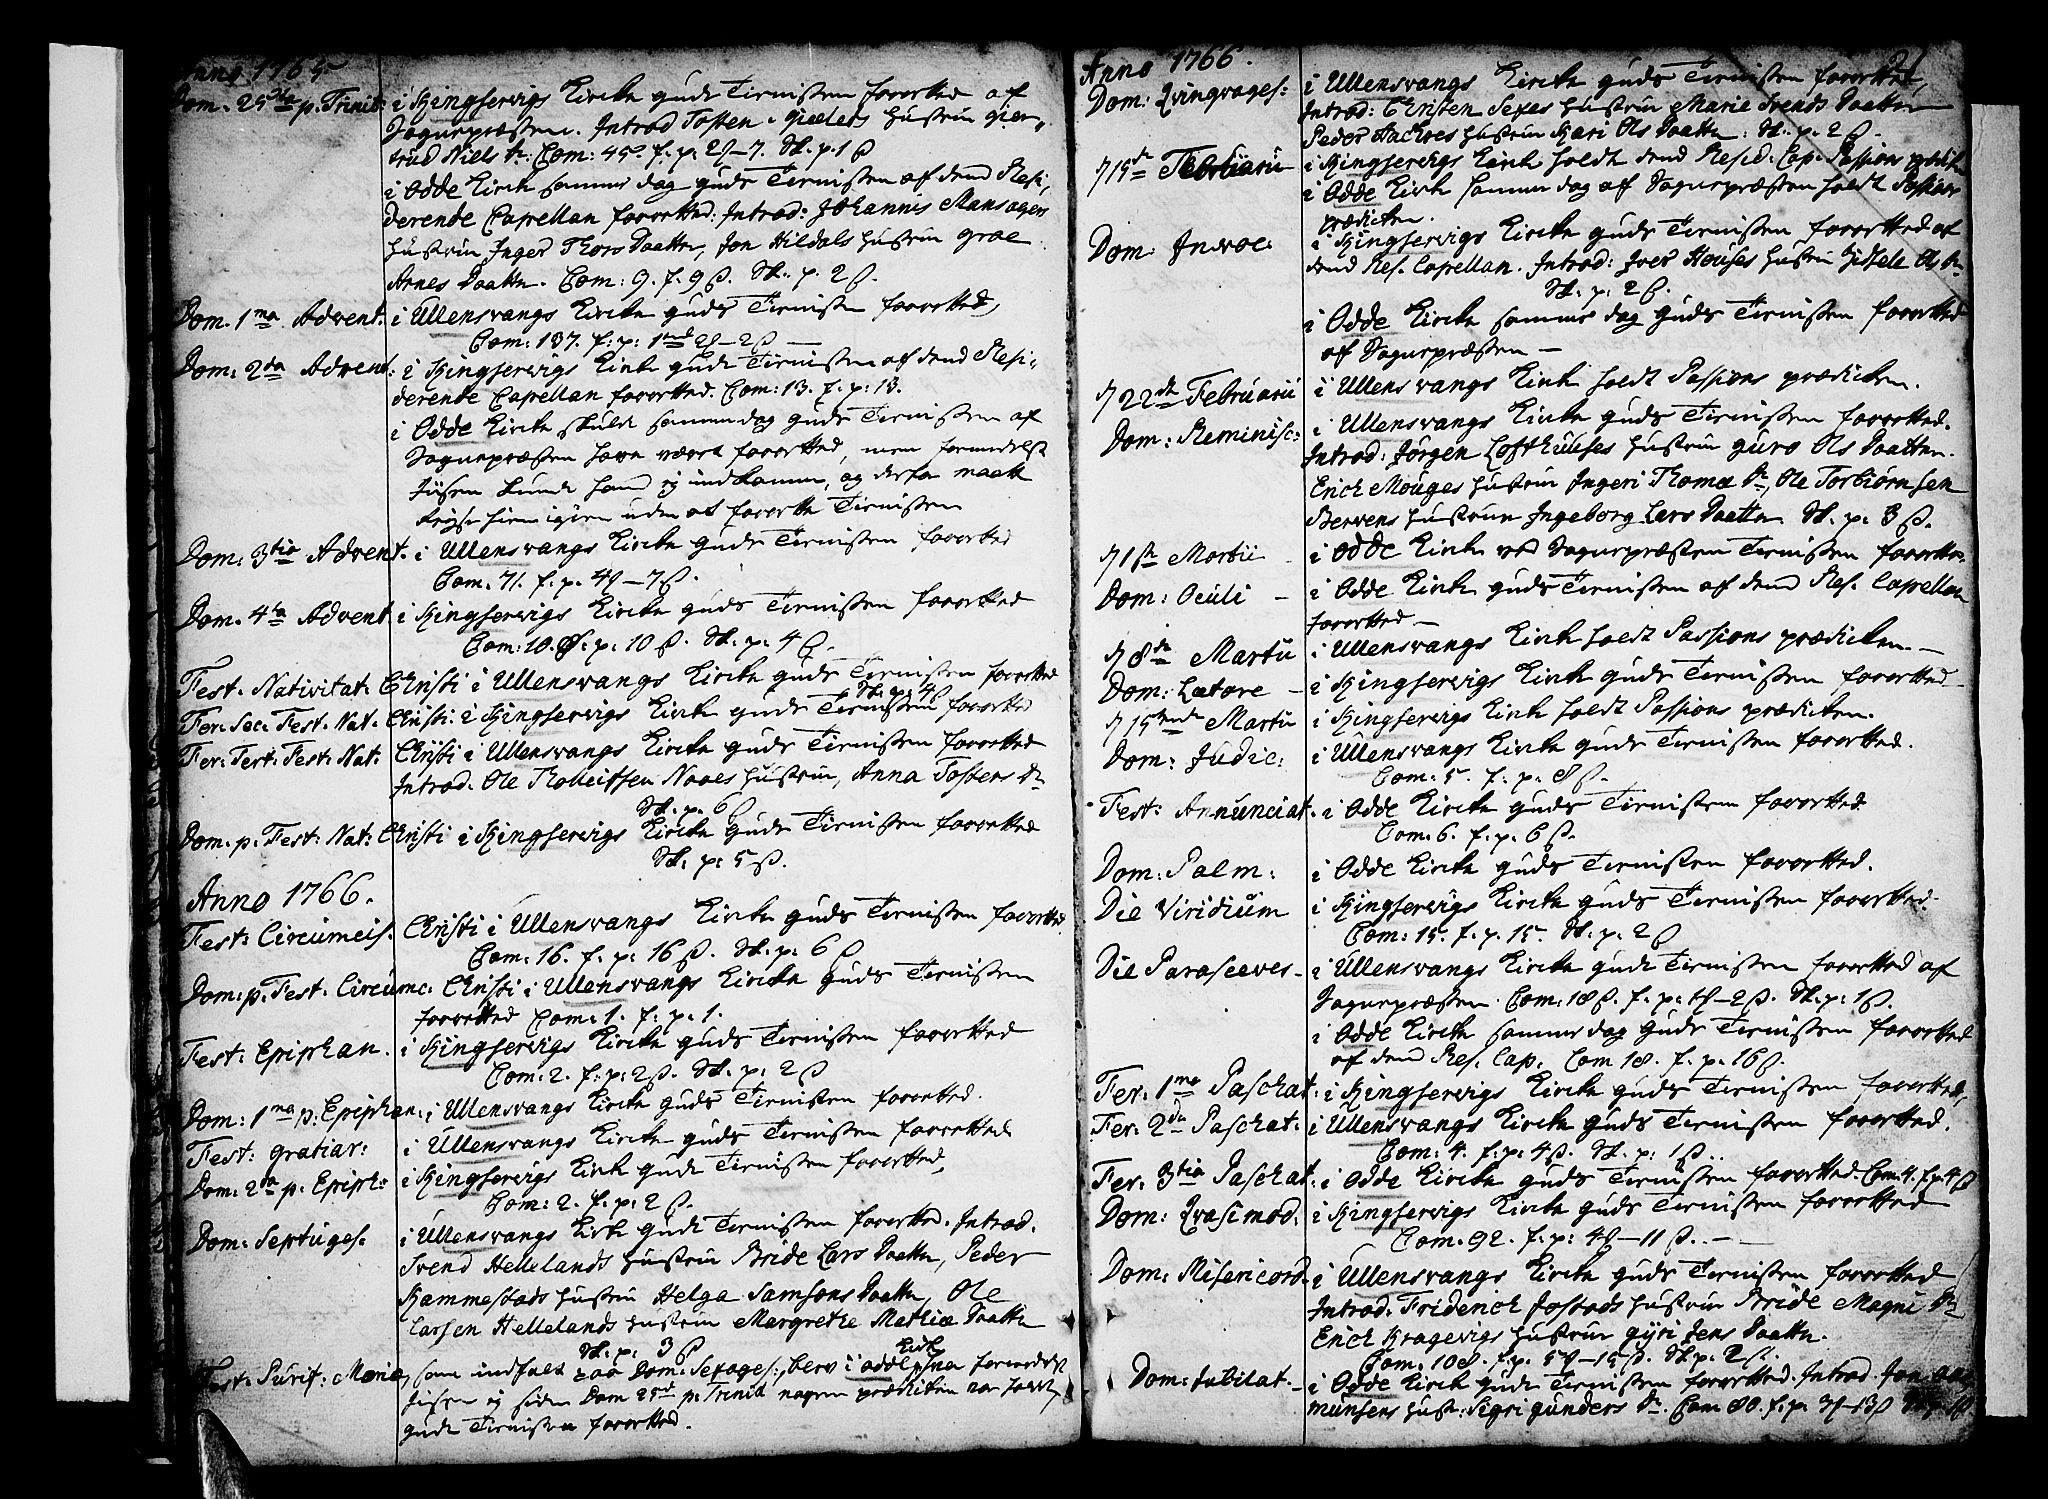 Anno 1765
Dom. 25de p. Trinit: i Kingservigs Kircke Guds Tienisten forretted af
Sognepræsten. Introd Tosten Hustru Gier,
trud Niels dr. Com: 45. f: p: 2 - 7. Sk. p. 1 ß
i Odde Kircke samme dag Guds Tienisten af dend Resi,
derende Capellan forretted: Introd: Johannis Mansagers
Hustru Inger Thors Daatter, Jon Hildals Hustru Groe
Arnes Daatter. Com: 9. f. 9 ß. Sk. p. 2 ß.
Dom. 1ma Advent. i Ullensvangs Kircke Guds Tienisten forretted,
Com: 137. f: p: 1 - 2 ß -
Dom: 2da Advent: i Kingservigs Kircke Guds Tienisten af dend Resi-
derende Capellan forretted. Com: 13. f. p: 13.
i Odde Kircke skulde samme dag Guds Tienisten af
Sognepræsten have været forretted, men formedelst
Jisen kunde hand ej indkomme, og derfor maatte
rejse hiem igien uden at forrette Tienisten
Dom: 3tia Advent. i Ullensvangs Kircke Guds Tienisten forretted
Com: 71. f. p. 4 - 7 ß.
Dom. 4ta Advent i Kingservigs Kircke Guds Tienisten forretted
Com: 10. f: p: 10 ß. Sk: p: 4 ß.
Fest. Nativitat. Christi i Ullensvangs Kircke Guds Tienisten forretted
Sk: p: 4
Fer. Sec. Fest. Nat. Christi. i Kingservigs Kircke Guds Tienisten forretted
Fer: Tert. Fest: Nat: Christi i Ullensvangs Kircke Guds Tienisten forretted
Introd. Ole Tholleitsen Naaes Hustru, Anna Tostens dr
Sk. p. 6 ß
Dom. p. Fest: Nat: Christi i Kingservigs Kircke Guds Tienisten forretted
Sk. p: 5 ß.
Anno 1766.
Fest: Circumcis. Christi i Ullensvangs Kircke Guds Tienisten forretted
Com: 16. f. p: 16 ß. Sk: p: 6 ß
Dom: p. Fest. Circumc: Christi i Ullensvangs Kircke Guds Tienisten
forretted Com: 1. f. p. 1.
Fest: Epiphan. i Kingservigs Kircke Guds Tienisten forretted
Com: 2. f: p: 2 ß. Sk. p: 2 ß
Dom: 1ma p: Epiphan: i Ullensvangs Kircke Guds Tienisten forretted.
Fest: Gratiar: i Ullensvangs Kircke Guds Tienisten forretted
Dom: 2da p. Epiph: i Kingservigs Kircke Guds Tienisten forretted,
Com: 2. f. p: 2 ß.
Dom: Septuges: i Ullensvangs Kircke Guds Tienisten forretted. Introd.
Svend Hellelands Hustru Bride Lars Daatter, Peder
Kammestads Hustru Helga Samsons Daatter, Ole
Larsen Hellelands Hustru Margrethe Mathiæ Daatter
Sk. p: 3 ß
Fest: Purif: Mariæ, som indfaldt paa Dom: Sexages:, blev i Odde Kirck formedelst
Jisen ej siden Dom 25de p: Trinit nogen prædiken
Guds Tienisten forretted.

Anno 1766.
Dom: Qvinqvages: i Ullensvangs Kircke Guds Tienisten forretted,
Introd: Christen Sexes Hustru Marie Svends Daatter
Peder Hustru Kari Ols Daatter: Sk: p: 2 ß.
d 15de Februarii i Kingservigs Kircke holdt dend Resid: Cap. Passions prædik
i Odde Kircke samme dag aff Sognepræsten holdt Passions
prædicken.
Dom: Invoc: i Kingservigs Kircke Guds Tienisten forretted af
dend Res. Capellan. Introd: Iver Houses Hustru Sidsele Ols dr
Sk: p: 2 ß.
i Odde Kircke samme dag Guds Tienisten forretted
af Sognepræsten -
d 22de Februarii i Ullensvangs Kircke holdt Passions prædicken.
Dom: Reminisc: i Ullensvangs Kircke Guds Tienisten forretted.
Introd: Jörgen Lofthuuses Hustru Guro Ols Daatter.
Erich Mouges Hustru Ingeri Thomæ Dr, Ole Torbiörnsen
Bervens Hustrue Ingeborg Lars Daatter. Sk. p: 3 ß.
d 1ste Martii i Odde Kircke ved Sognepræsten Tienisten forretted.
Dom: Oculi - i Odde Kircke Guds Tienisten af dend Res. Capellan
forretted -
d 8de Martii i Ullensvangs Kircke holdt Passions prædicken. -
Dom: Lætare - i Kingservigs Kircke Guds Tienisten forretted
d 15tende Martii i Kingservigs Kircke holdt Passions prædicken.
Dom: Judic: i Ullensvangs Kircke Guds Tienisten forretted.
Com: 5. f. p: 8 ß.
Fest: Annunciat. i Odde Kircke Guds Tienisten forretted
Com: 6. f. p: 6 ß.
Dom: Palm: i Odde Kircke Guds Tienisten forretted.
Die Viridium i Kingservigs Kircke Guds Tienisten forretted.
Com: 15. f. p. 15. Sk. p. 2 ß
Die Parasceves - i Ullensvangs Kircke Guds Tienisten forretted af
Sognepræsten. Com: 18 ß. f. p: 1 - 2 ß. Sk: p: 1 ß.
i Odde Kircke samme dag Guds Tienisten forretted
af dend Res. Cap. Com 18. f. p. 16 ß.
Fer: 1ma Paschat: i Kingservigs Kircke Guds Tienisten forretted,
Fer: 2da Paschat: i Ullensvangs Kircke Guds Tienisten forretted.
Com: 4. f: p: 4 ß. Sk. p: 1 ß.
Fer: 3tia Paschat: i Odde Kircke Guds Tienisten forretted. Com. 4. f. p. 4 ß
Dom: Qvasimod: i Kingservigs Kircke Guds Tienisten forretted
Com. 92. f. p: 4 - 11 ß. -
Dom: Misericord. i Ullensvangs Kircke Guds Tienisten forretted
Introd. Friderich Jostads Hustru Bride Magni Dr
Erich Kragevigs Hustru Gyri Jens Daatter.
Com: 108. f. p: 5 - 15 ß. Sk. p: 2 ß.
Dom: Jubilat. - i Odde Kircke Guds Tienisten forretted. Introd. Jon Aas
munsens Hust: Sigri Gunders Dr. Com 80. f. p. 3 - 13 ß